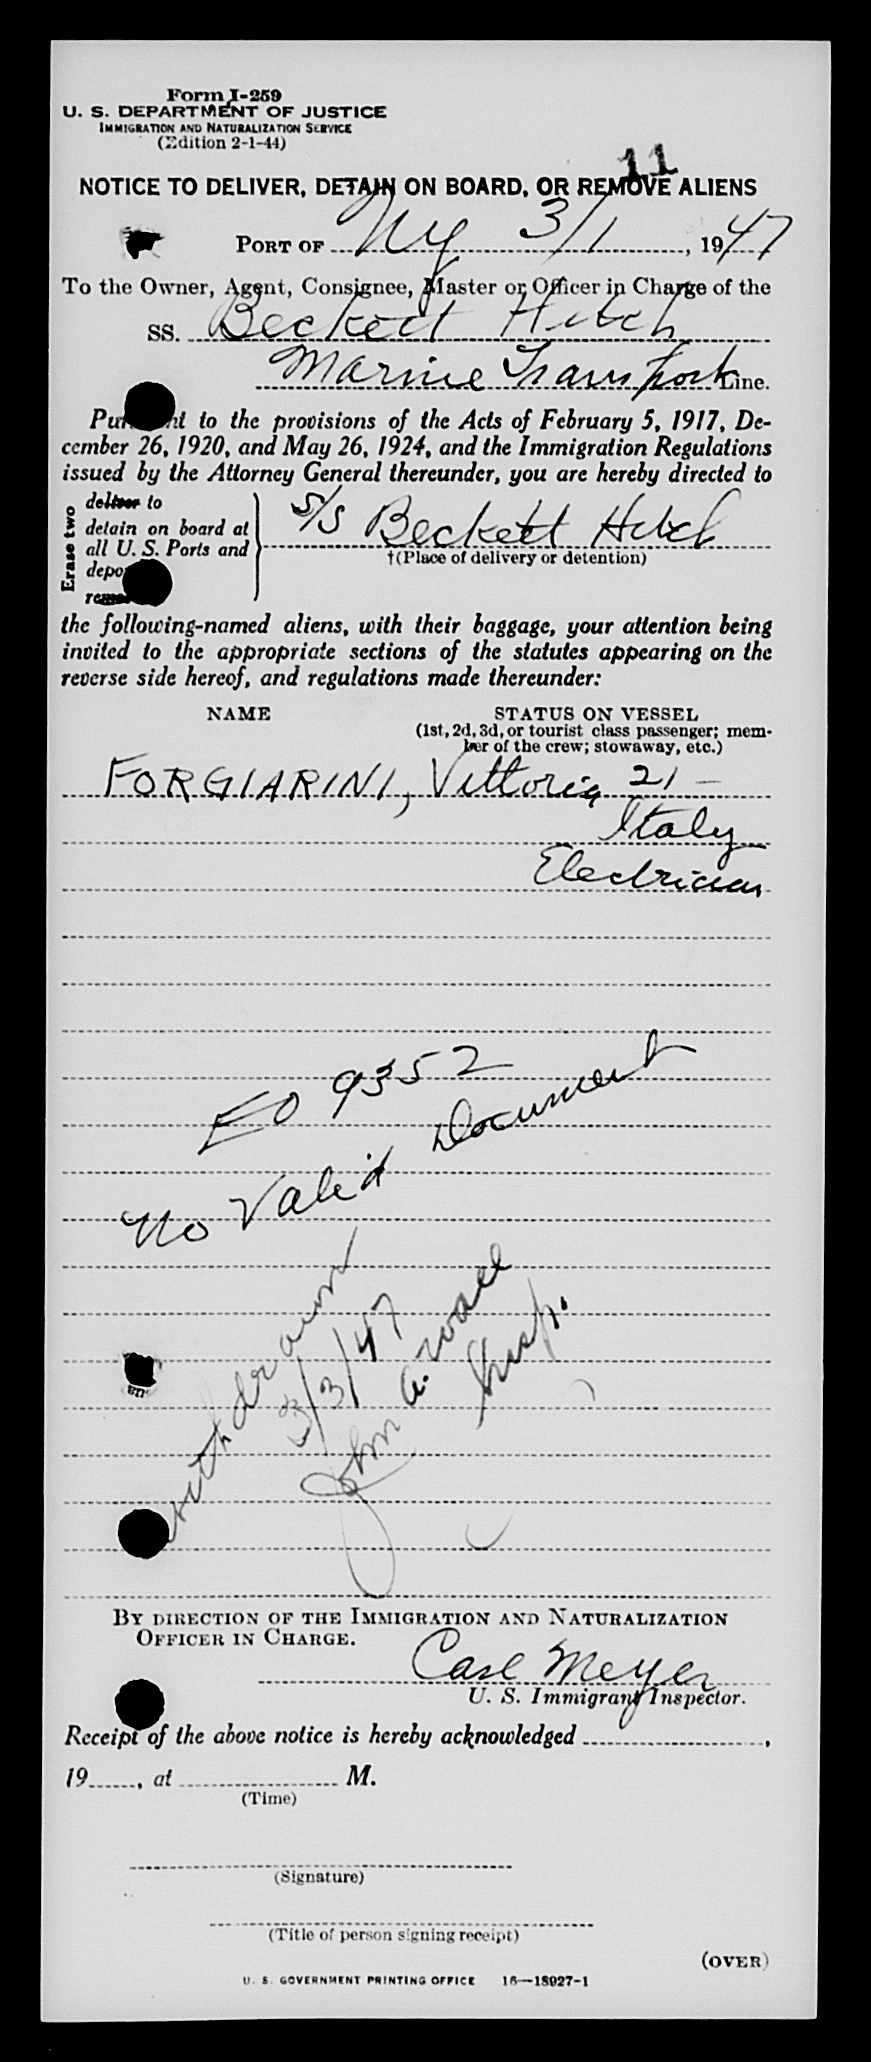 Form I-259
U. S. DEPARTMENT OF JUSTICE
IMMIGRATION AND NATURALIZATION SERVICE
(Edition 2-1-44)
11
NOTICE TO DELIVER, DETAIN ON BOARD, OR REMOVE ALIENS
PORT OF NY 3/1, 1947
To the Owner, Agent, Consignee, Master or Officer in Charge of the
SS. Beckett Hitch
Marine Transport Line.
to the provisions of the Acts of February 5, 1917, De-
cember 26, 1920, and May 26, 1924, and the Immigration Regulations
issued by the Attorney General thereunder, you are hereby directed to
Erase two
deliver to
detain on board at
all U. S. Ports and
S/S Beckett Hitch
†(Place of delivery or detention)
the following-named aliens, with their baggage, your attention being
invited to the appropriate sections of the statutes appearing on the
reverse side hereof, and regulations made thereunder:
NAME STATUS ON VESSEL
(1st, 2d, 3d, or tourist class passenger; mem-
ber of the crew; stowaway, etc.)
FORGIARINI, Vittorio 21 –
Italy
Electrician
EO 9352
No Valid Document
withdrawn
3/3/47
John A. Wall
Insp.
BY DIRECTION OF THE IMMIGRATION AND NATURALIZATION
OFFICER IN CHARGE.
Carl Meyer
U. S. Immigrant Inspector.
Receipt of the above notice is hereby acknowledged ,
19 , at M.
(Time)
(Signature)
(Title of person signing receipt)
(OVER)
U. S. GOVERNMENT PRINTING OFFICE 16—18927-1